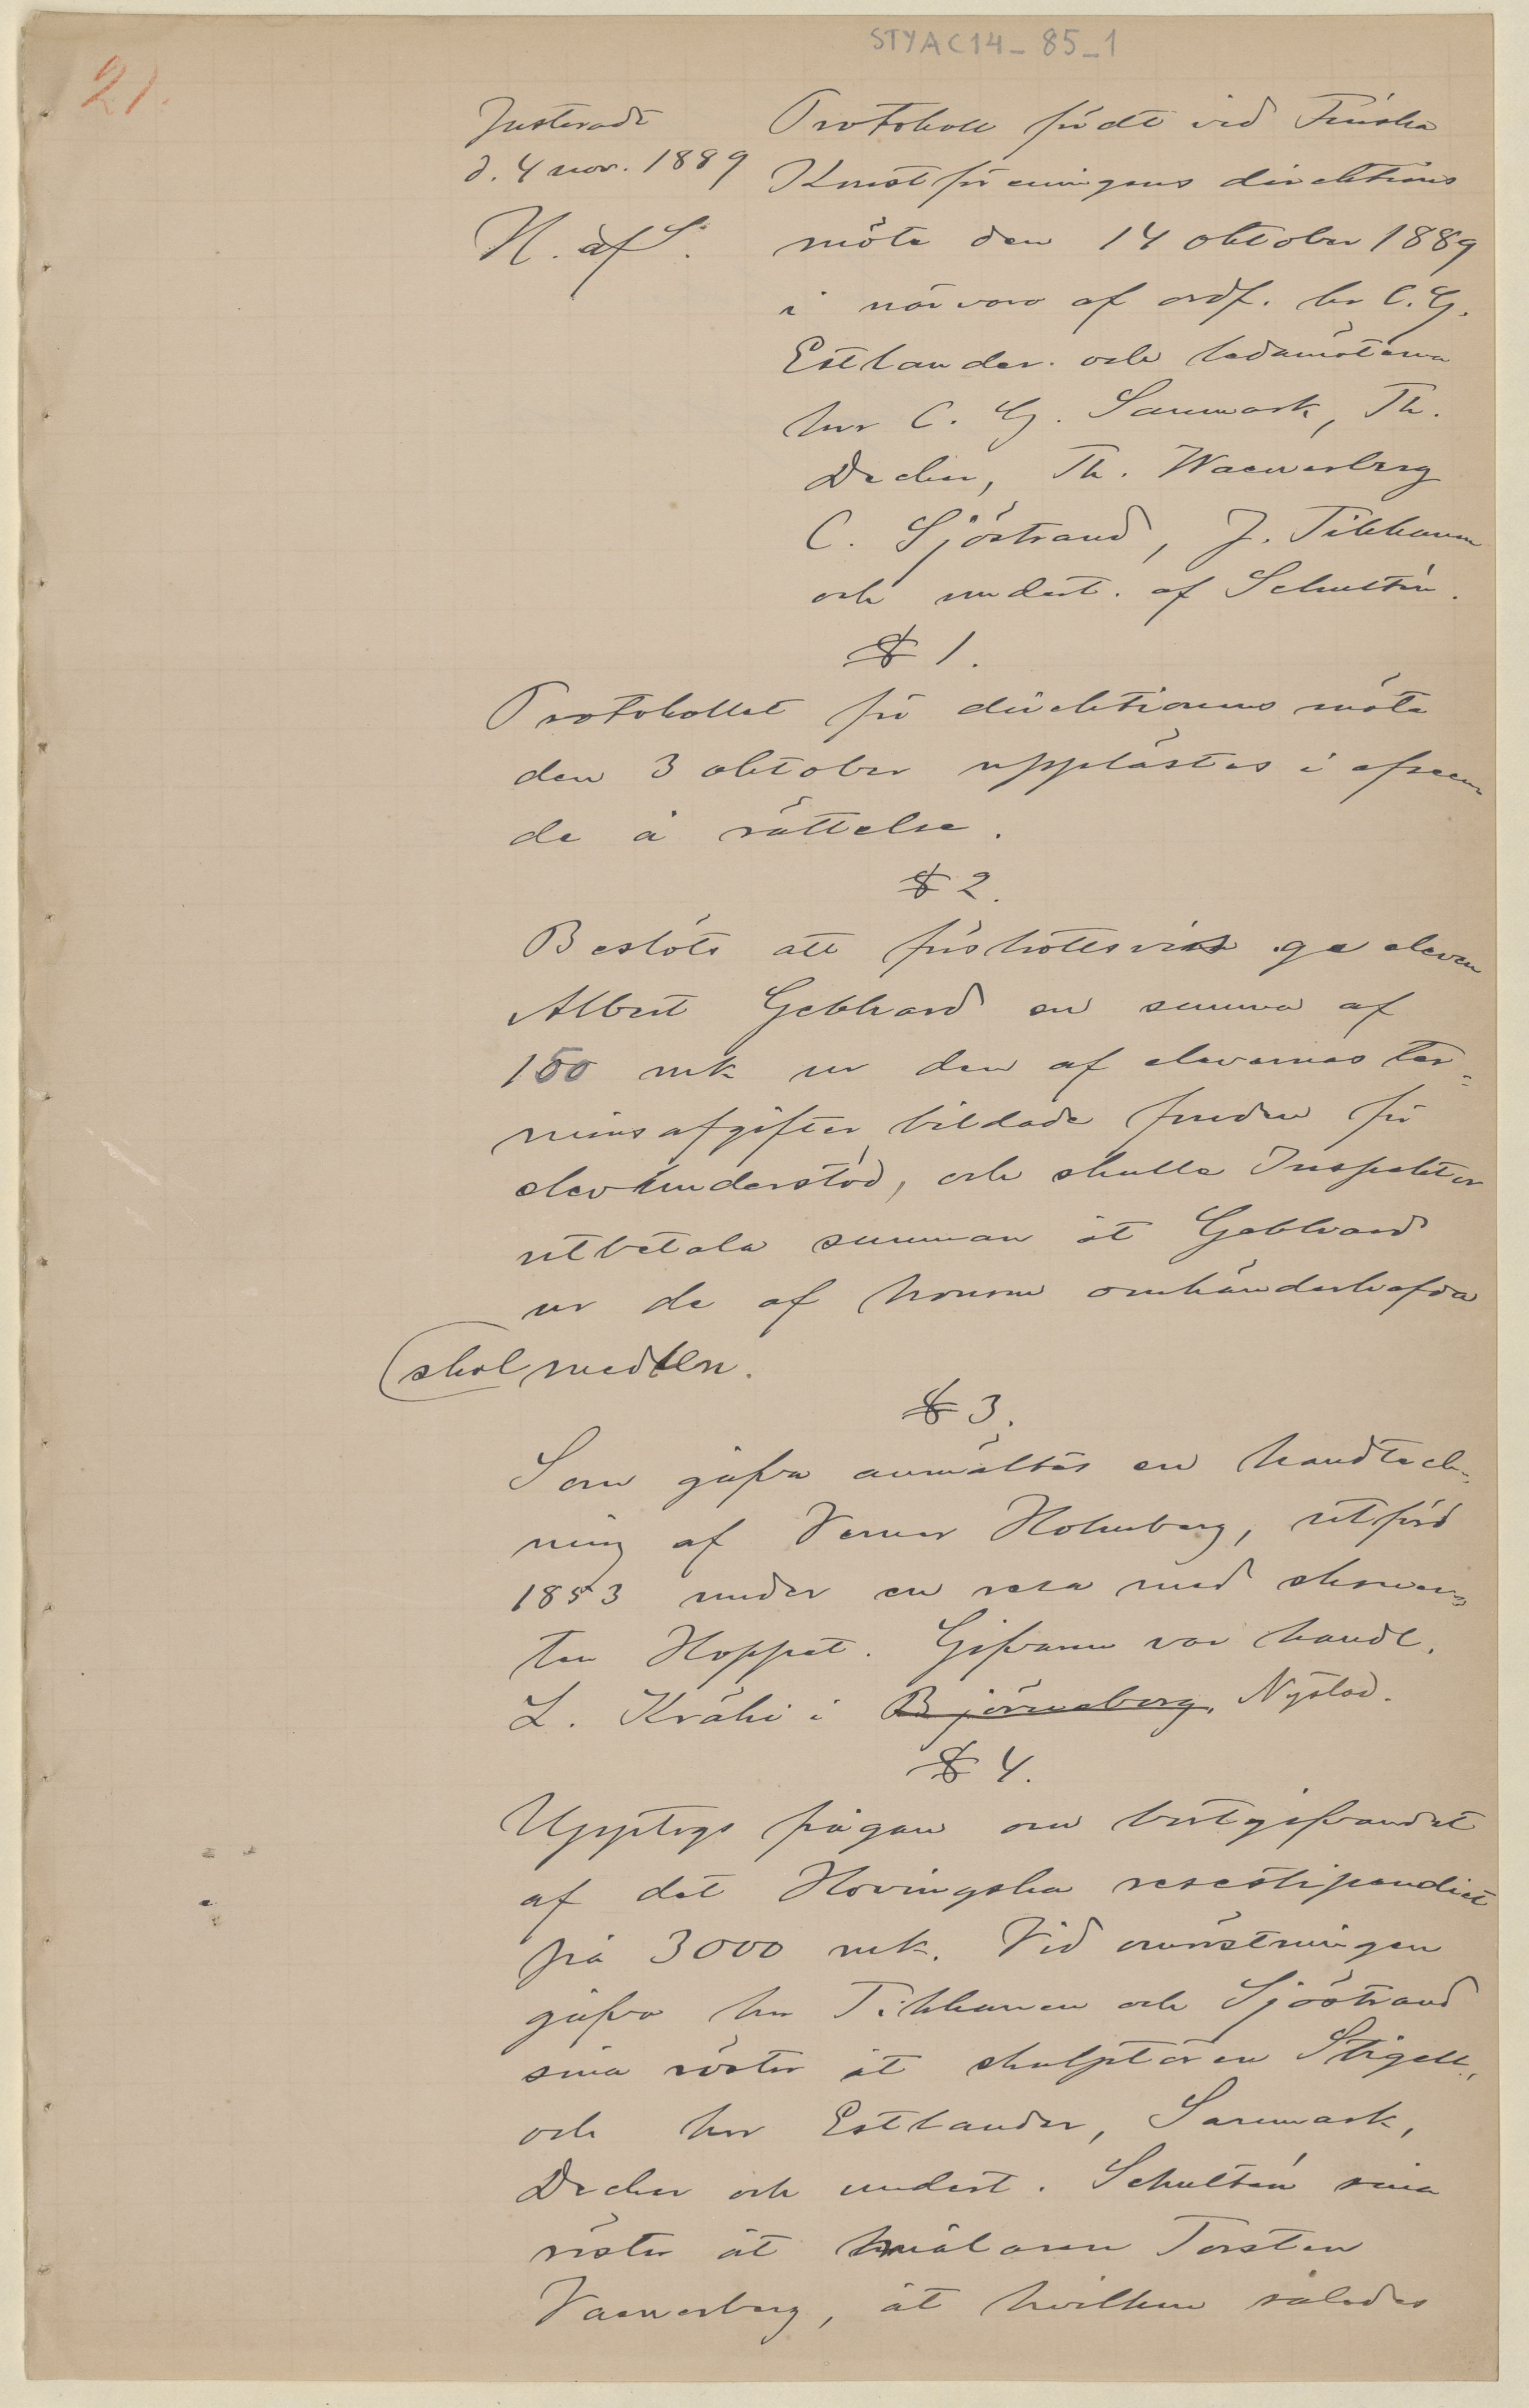 STYAC14_85_1
21.
Justeradt
d. 4 nov. 1889
N. af S.
Protokoll fördt vid Finska
Konstföreningens direktions
möte den 14 oktober 1889
i närvaro af ordf. hr C. G.
Estlander och ledamöterna
hrr C. G. Sanmark, Th.
Decker, Th. Waenerberg
C. Sjöstrand, J. Tikkanen
och undert. af Schultén.
§ 1.
Protokollet för direktionens möte
den 3 oktober upplästes i afseen
de å rättelse.
§ 2.
Beslöts att förskottsvis ge eleven
Albert Gebhard en summa af
150 mk ur den af elevernas ter-
minsafgifter bildade fonden för
elevunderstöd, och skulle Inspektor
utbetala summan åt Gebhard
ur de af honom omhänderhafda
skolmedlen.
§ 3.
Som gåfva anmältes en handteck-
ning af Verner Holmberg, utförd
1853 under en resa med skonar-
ten Hoppet. Gifvaren var handl.
L. Kråhi i Björneborg, Nystad.
§ 4.
Upptogs frågan om bortgifvandet
af det Hovingska resestipendiet
på 3000 mk. Vid omröstningen
gåfvo hrr Tikkanen och Sjöstrand
sina röster åt skulptören Stigell,
och hrr Estlander, Sanmark,
Decker och undert. Schultén sina
röster åt målaren Torsten
Vaenerberg, åt hvilken således